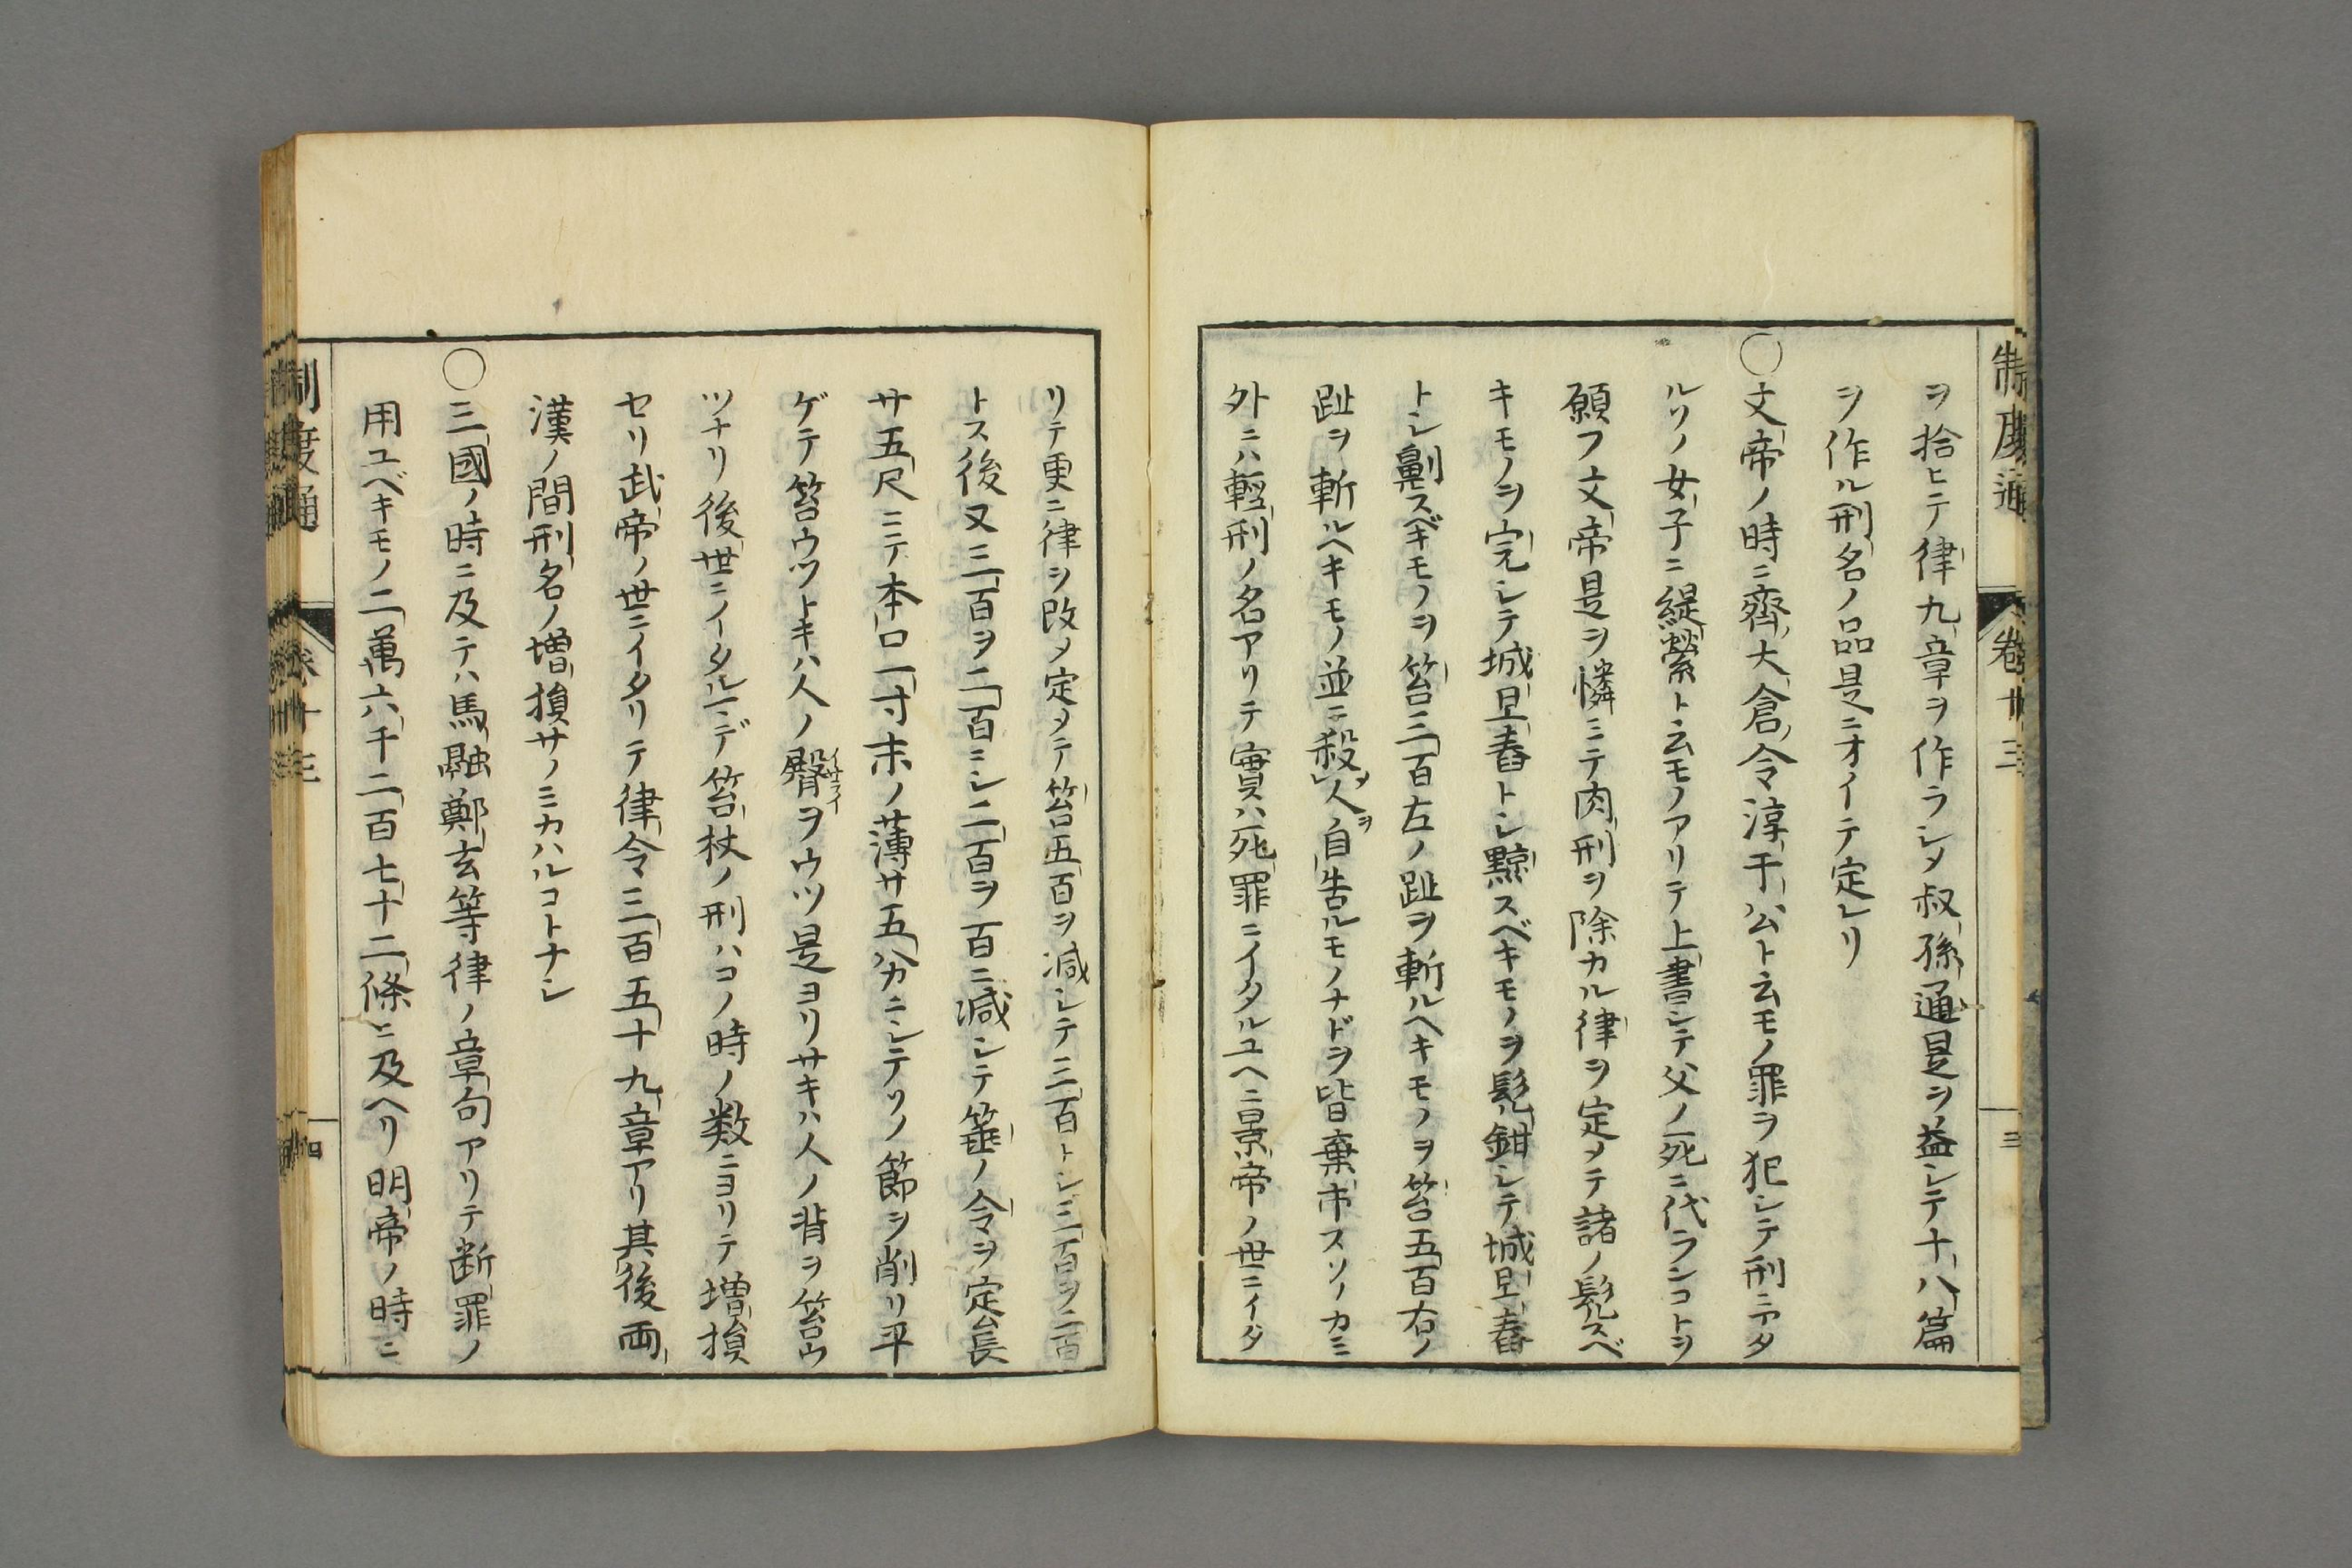 制度通
卷十三
三
ヲ拾ヒテ律九章ヲ作ラシメ叔孫通是ヲ益シテ十八篇
ヲ作ル刑名ノ品是ニオイテ定レリ
〇文帝ノ時ニ齊大倉令淳于公ト云モノ罪ヲ犯シテ刑ニアタ
ルソノ女子ニ緹縈ト云モノアリテ上書シテ父ノ死ニ代ランコトヲ
願フ文帝是ヲ憐ミテ肉刑ヲ除カル律ヲ定メテ諸ノ髡スベ
キモノヲ完シテ城旦舂トシ黥スベキモノヲ髡鉗シテ城旦舂
トシ劓スベキモノヲ笞三百左ノ趾ヲ斬ルヘキモノヲ笞五百右ノ
趾ヲ斬ルヘキモノ並ニ殺メ人ヲ自告ルモノナドヲ皆棄市スソノカミ
外ニハ輕刑ノ名アリテ實ハ死罪ニイタルユヘニ景帝ノ世ニイタ
リテ更ニ律ヲ改メ定メテ笞五百ヲ減シテ三百トシ三百ヲ二百
トス後又三百ヲ二百ニシ二百ヲ百ニ減シテ箠ノ令ヲ定長
サ五尺ニテ本口一寸末ノ薄サ五八カニシテソノ節ヲ削リ平
ゲテ笞ウツトキハ人ノ臀イサライヲウツ是ヨリサキハ人ノ背ヲ笞ウ
ツナリ後世ニイタルマデ笞杖ノ刑ハコノ時ノ数ニヨリテ増損
セリ武帝ノ世ニイタリテ律令三百五十九章アリ其後両
漢ノ間刑名ノ増損サノミカハルコトナシ
〇三國ノ時ニ及テハ馬融鄭玄等律ノ章句アリテ断罪ノ
用ユベキモノ二萬六千二百七十二條ニ及ヘリ明帝ノ時ニ
制度通
卷十三
四